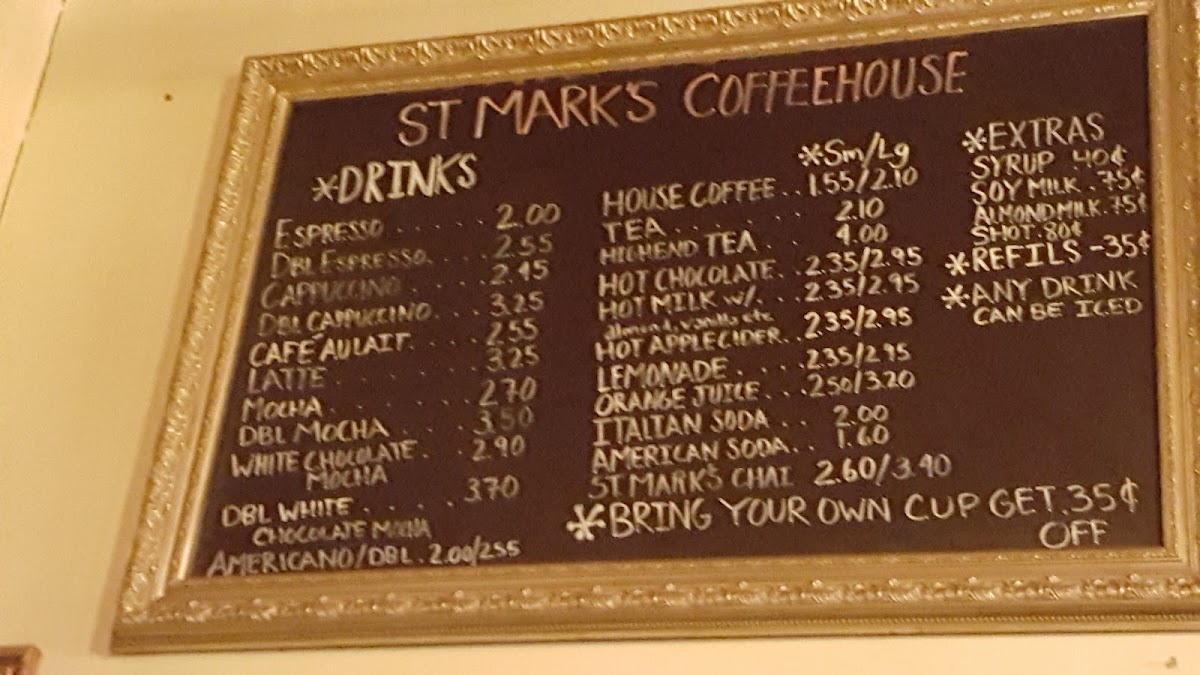 ST MARK'S COFFEEHOUSE
*DRINKS
ESPRESSO . . . . . 2.00
DBL ESPRESSO. . . . 2.55
CAPPUCCINO . . . . 2.45
DBL CAPPUCCINO. . . 3.25
CAFÉ AULAIT. . . . 2.55
LATTE . . . . . . . 3.25
MOCHA . . . . . . . 2.70
DBL MOCHA . . . . 3.50
WHITE CHOCOLATE. . 2.90
MOCHA
DBL WHITE . . . . . 3.70
CHOCOLATE MOCHA
AMERICANO/DBL . 2.00/2.55
*Sm/Lg
HOUSE COFFEE . . 1.55/2.10
TEA . . . . . . . 2.10
HIGHEND TEA . . . 4.00
HOT CHOCOLATE . . 2.35/2.95
HOT MILK w/. . . 2.35/2.95
almond, vanilla etc
HOT APPLECIDER. . 2.35/2.95
LEMONADE . . . . . 2.35/2.95
ORANGE JUICE . . . 2.50/3.20
ITALIAN SODA . . 2.00
AMERICAN SODA. . 1.60
ST MARK'S CHAI 2.60/3.40
*EXTRAS
SYRUP 40¢
SOY MILK . 75¢
ALMOND MILK . 75¢
SHOT . 80¢
*REFILS - 35¢
*ANY DRINK
CAN BE ICED
*BRING YOUR OWN CUP GET .35¢
OFF